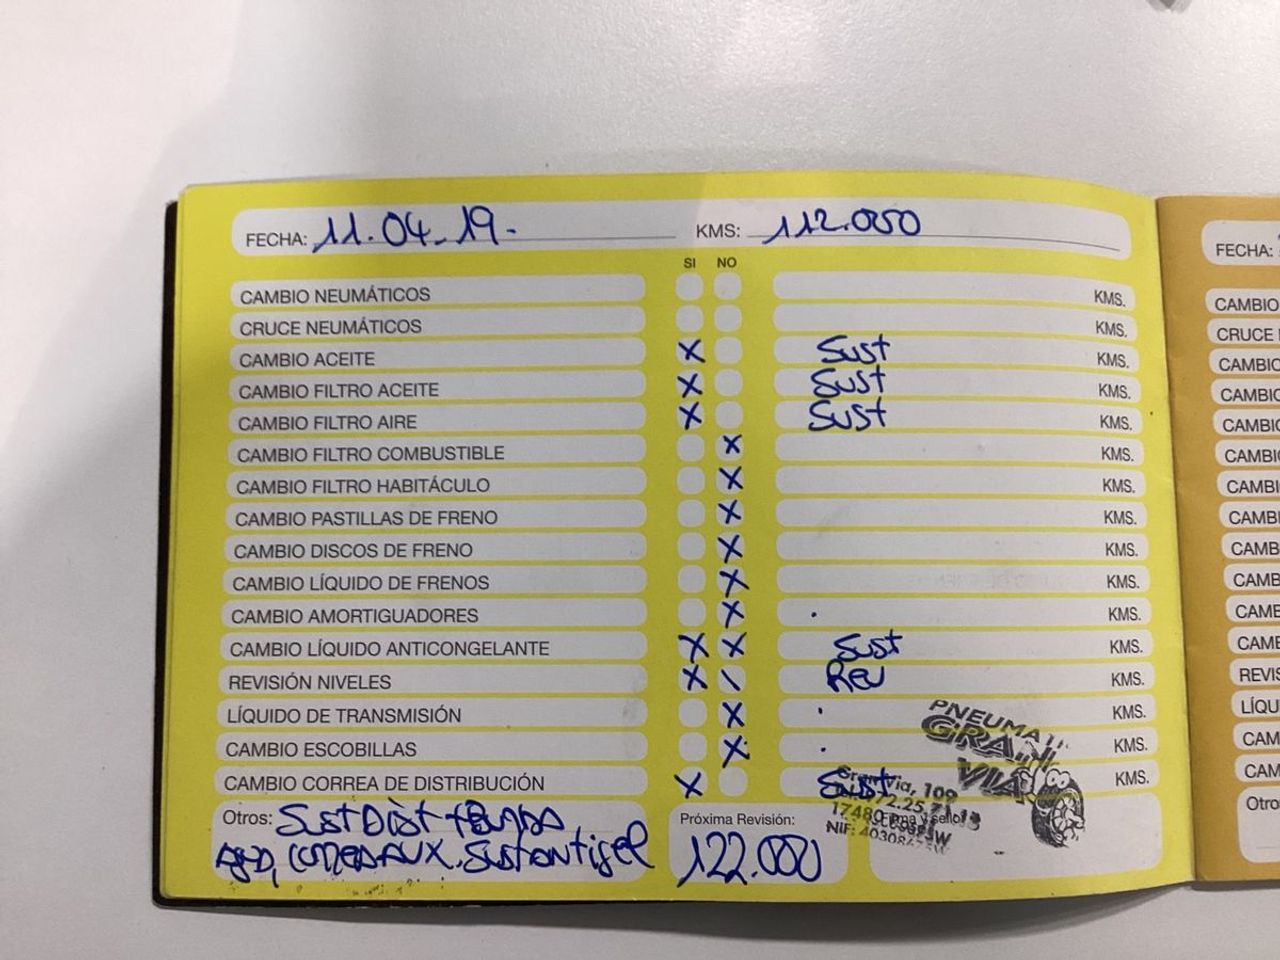 FECHA: 11.04.19. KMS: 112.000
SI NO
CAMBIO NEUMÁTICOS KMS.
CRUCE NEUMÁTICOS KMS.
CAMBIO ACEITE X Sust KMS.
CAMBIO FILTRO ACEITE X Sust KMS.
CAMBIO FILTRO AIRE X Sust KMS.
CAMBIO FILTRO COMBUSTIBLE X KMS.
CAMBIO FILTRO HABITÁCULO X KMS.
CAMBIO PASTILLAS DE FRENO X KMS.
CAMBIO DISCOS DE FRENO X KMS.
CAMBIO LÍQUIDO DE FRENOS X KMS.
CAMBIO AMORTIGUADORES X . KMS.
CAMBIO LÍQUIDO ANTICONGELANTE X X Sust KMS.
REVISIÓN NIVELES X \ Rev KMS.
LÍQUIDO DE TRANSMISIÓN X . KMS.
CAMBIO ESCOBILLAS X . KMS.
CAMBIO CORREA DE DISTRIBUCIÓN X Sust KMS.
Otros: Sust Dist + Bomba
Agua, correa AUX. Sust antigel
Próxima Revisión:
122.000
Firma y sello
GRAN
VIA
Gran Via, 109
17480
NIF:
FECHA:
CAMBIO
CRUCE
CAMBIO
CAMBIO